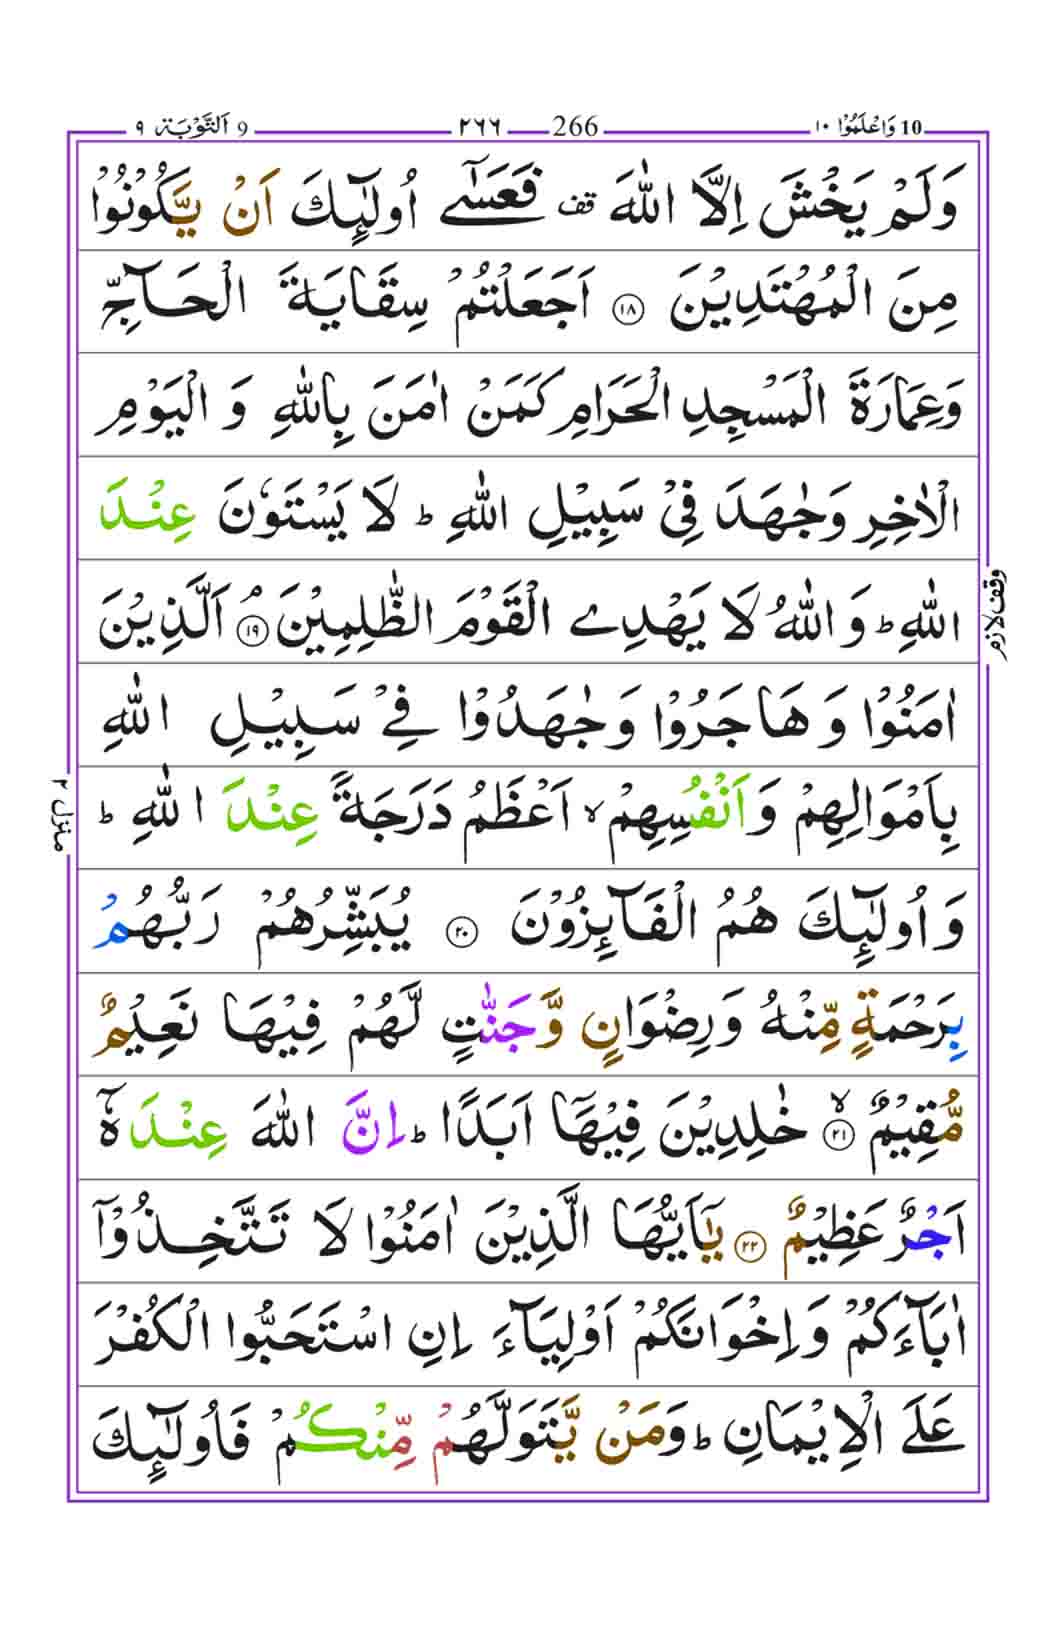 وَاعْلَمُوْٓا ۱۰ 10 266 ۲۶۶ 9 اَلتَّوْبَة ۹
وَلَمْ يَخْشَ اِلَّا اللّٰهَ قف فَعَسٰٓى اُولٰٓئِكَ اَنْ يَّكُوْنُوْا
مِنَ الْمُهْتَدِيْنَ ۱۸ اَجَعَلْتُمْ سِقَايَةَ الْحَآجِّ
وَعِمَارَةَ الْمَسْجِدِ الْحَرَامِ كَمَنْ اٰمَنَ بِاللّٰهِ وَ الْيَوْمِ
الْاٰخِرِ وَجٰهَدَ فِيْ سَبِيْلِ اللّٰهِ ؕ لَا يَسْتَوٗنَ عِنْدَ
اللّٰهِ ؕ وَ اللّٰهُ لَا يَهْدِے الْقَوْمَ الظّٰلِمِيْنَ ۘ ۱۹ اَلَّذِيْنَ
وقف لازم
اٰمَنُوْا وَ هَاجَرُوْا وَ جٰهَدُوْا فِيْ سَبِيْلِ اللّٰهِ
بِاَمْوَالِهِمْ وَ اَنْفُسِهِمْ ۙ اَعْظَمُ دَرَجَةً عِنْدَ اللّٰهِ ؕ
منزل ۲
وَ اُولٰٓئِكَ هُمُ الْفَآئِزُوْنَ ۲۰ يُبَشِّرُهُمْ رَبُّهُمْ
بِرَحْمَةٍ مِّنْهُ وَرِضْوَانٍ وَّجَنّٰتٍ لَّهُمْ فِيْهَا نَعِيْمٌ
مُّقِيْمٌ ۙ ۲۱ خٰلِدِيْنَ فِيْهَآ اَبَدًا ؕ اِنَّ اللّٰهَ عِنْدَهٗٓ
اَجْرٌ عَظِيْمٌ ۲۲ يٰٓاَيُّهَا الَّذِيْنَ اٰمَنُوْا لَا تَتَّخِذُوْٓا
اٰبَآءَكُمْ وَ اِخْوَانَكُمْ اَوْلِيَآءَ اِنِ اسْتَحَبُّوا الْكُفْرَ
عَلَى الْاِيْمَانِ ؕ وَمَنْ يَّتَوَلَّهُمْ مِّنْكُمْ فَاُولٰٓئِكَ